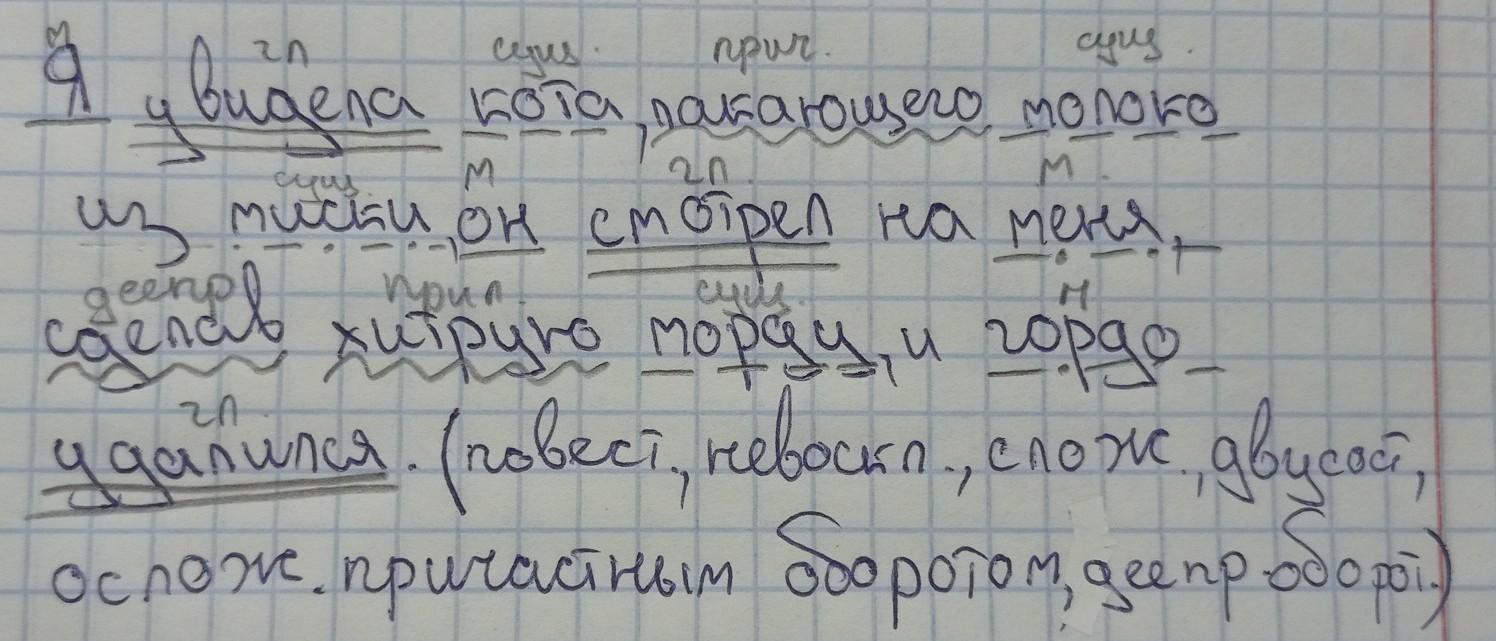 м гл сущ. прич. сущ.
Я увидела кота, лакающего молоко
сущ. м гл. м.
из миски, он смотрел на меня,
деепр прил. сущ. н
сделав хитрую морду, и гордо
гл.
удалился. (повест., невоскл., слож., двусост,
ослож. причастным оборотом, деепр. оборот.)